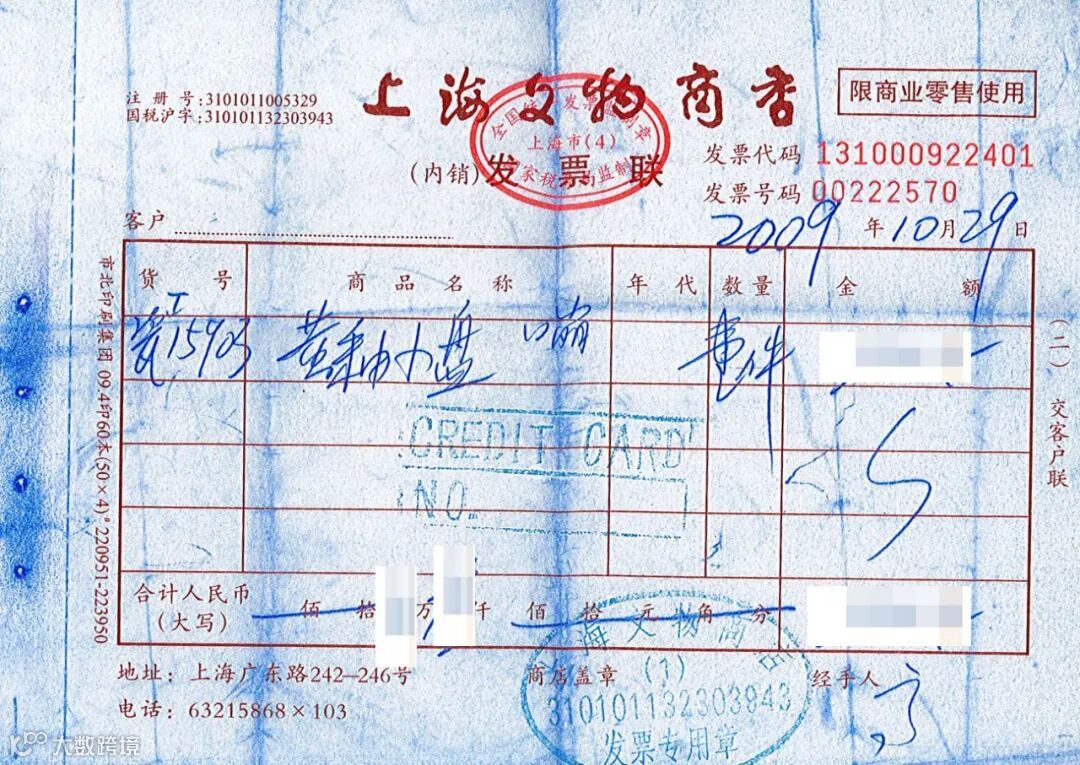 注册号:3101011005329
国税沪字:310101132303943
上海文物商店
限商业零售使用
全国统一发票监制章
上海市(4)
国家税务局监制
(内销)发票联
发票代码 131000922401
发票号码 00222570
客户
2009年10月29日
货号 商品名称 年代 数量 金额
瓷I15903 黄釉小盘 口崩 壹件
CREDIT CARD
NO.
合计人民币
(大写)
佰拾万仟佰拾元角分
地址:上海广东路242-246号
电话:63215868×103
商店盖章
经手人
上海文物商店
(1)
310101132303943
发票专用章
(二)交客户联
市北印刷集团 09.4印60本(50×4)*220951-223950
大数跨境